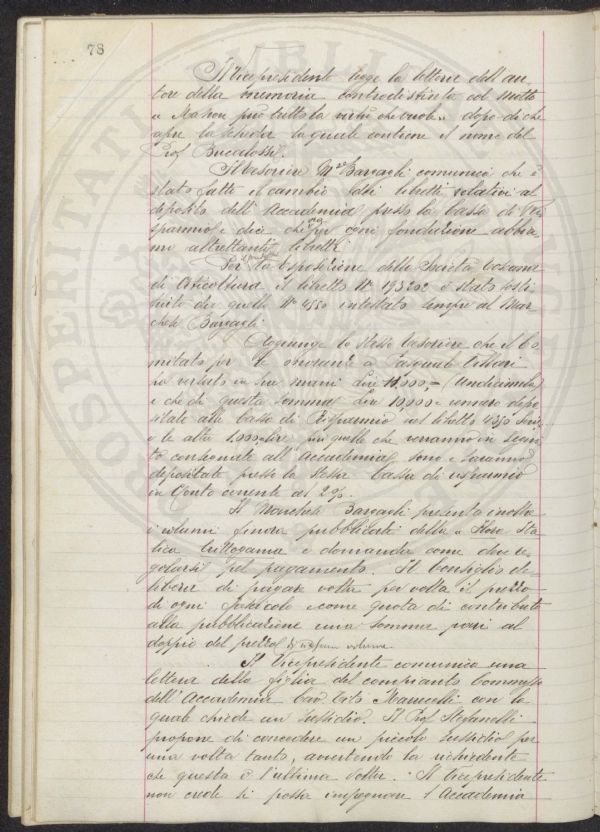 78
Il Vicepresidente legge la lettera dell'au-
tore della memoria contradistinta col motto
« Ma non può tutto la virtù che vuole » dopo di che
apre la scheda la quale contiene il nome del
Prof Bucalossi.
Il tesoriere Mse Bargagli comunica che è
stato fatto il cambio dei libretti relativi al
deposito dell'Accademia presso la Cassa di Ri
sparmio e dice che per ogni fondazione abbia-
mo altrettanti libretti.
Per la Esposizione della Società toscana
di Orticultura il libretto No 193202 è stato sosti
tuito da quello No 4550 intestato sempre al Mar
chese Bargagli
Aggiunge lo stesso tesoriere che il Co
mitato per le onoranze a Pasquale Villari
ha versato in sue mani Lire 11,000,= (undicimila)
e che di questa somma Lire 10,000= vennero depo
sitate alla Cassa di Risparmio nel libretto 4350
e le altre 1,000 lire più quelle che verranno in segui
to consegnate all'Accademia sono e saranno
depositate presso la stessa Cassa di risparmio
in Conto corrente al 2%.
Il Marchese Bargagli presenta inoltre
i volumi finora pubblicati della « Flora Ita
lica Crittogama e domanda come deve re-
golarsi pel pagamento. Il Consiglio de-
libera di pagare volta per volta il prezzo
di ogni fascicolo e come quota di contributo
alla pubblicazione una somma pari al
doppio del prezzo di ciascun volume.
Il Vicepresidente comunica una
lettera della figlia del compianto Commesso
dell'Accademia Cav. Vito Manecchi con la
quale chiede un sussidio. Il Prof Stefanelli
propone di concedere un piccolo sussidio per
una volta tanto, avvertendo la richiedente
che questa è l'ultima volta. Il Vicepresidente
non crede si possa impegnare l'Accademia